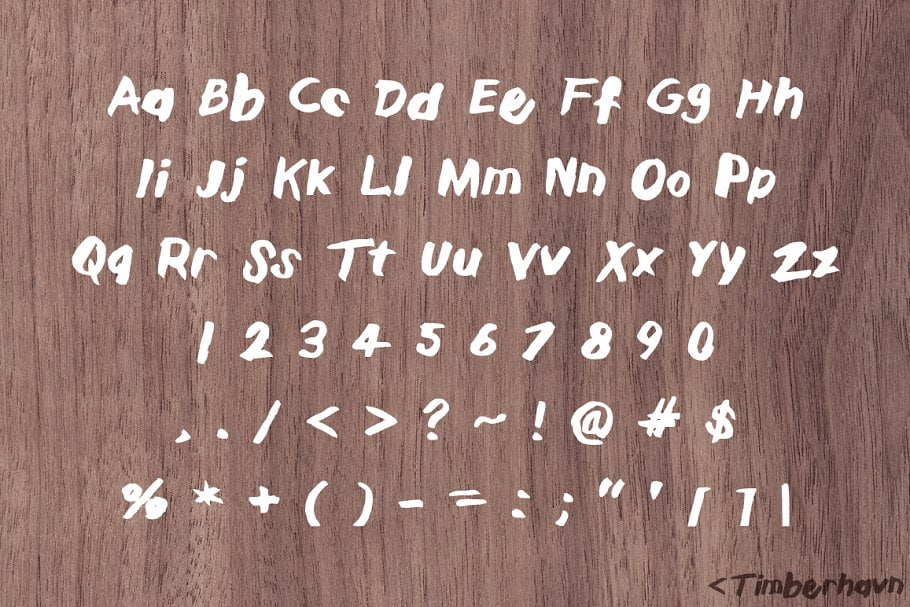 Aa Bb Cc Dd Ee Ff Gg Hh
Ii Jj Kk Ll Mm Nn Oo Pp
Qq Rr Ss Tt Uu Vv Xx Yy Zz
1 2 3 4 5 6 7 8 9 0
, . / < > ? ~ ! @ # $
% * + ( ) - = : ; " ' [ ] |
<Timberhavn